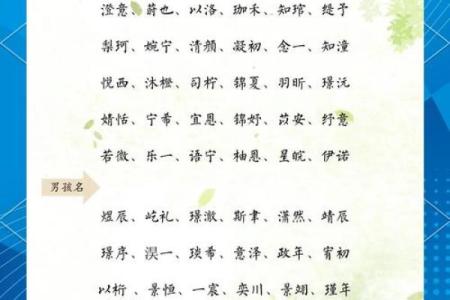 澄意、蔚也、以洛、珈禾、知琯、缇予
梨珂、婉宁、清颜、凝初、念一、知潼
悦西、沐橙、司柠、锦夏、羽昕、璟沅
婧恬、宁希、宜恩、锦妤、苡安、纾意
若微、乐一、语宁、柚恩、星皖、伊诺
男孩名
煜辰、屹礼、璟澈、斯聿、潇然、靖辰
璟序、淏一、琰希、意泽、政年、宥初
以桁、景恒、一宸、奕川、景翊、瑾年